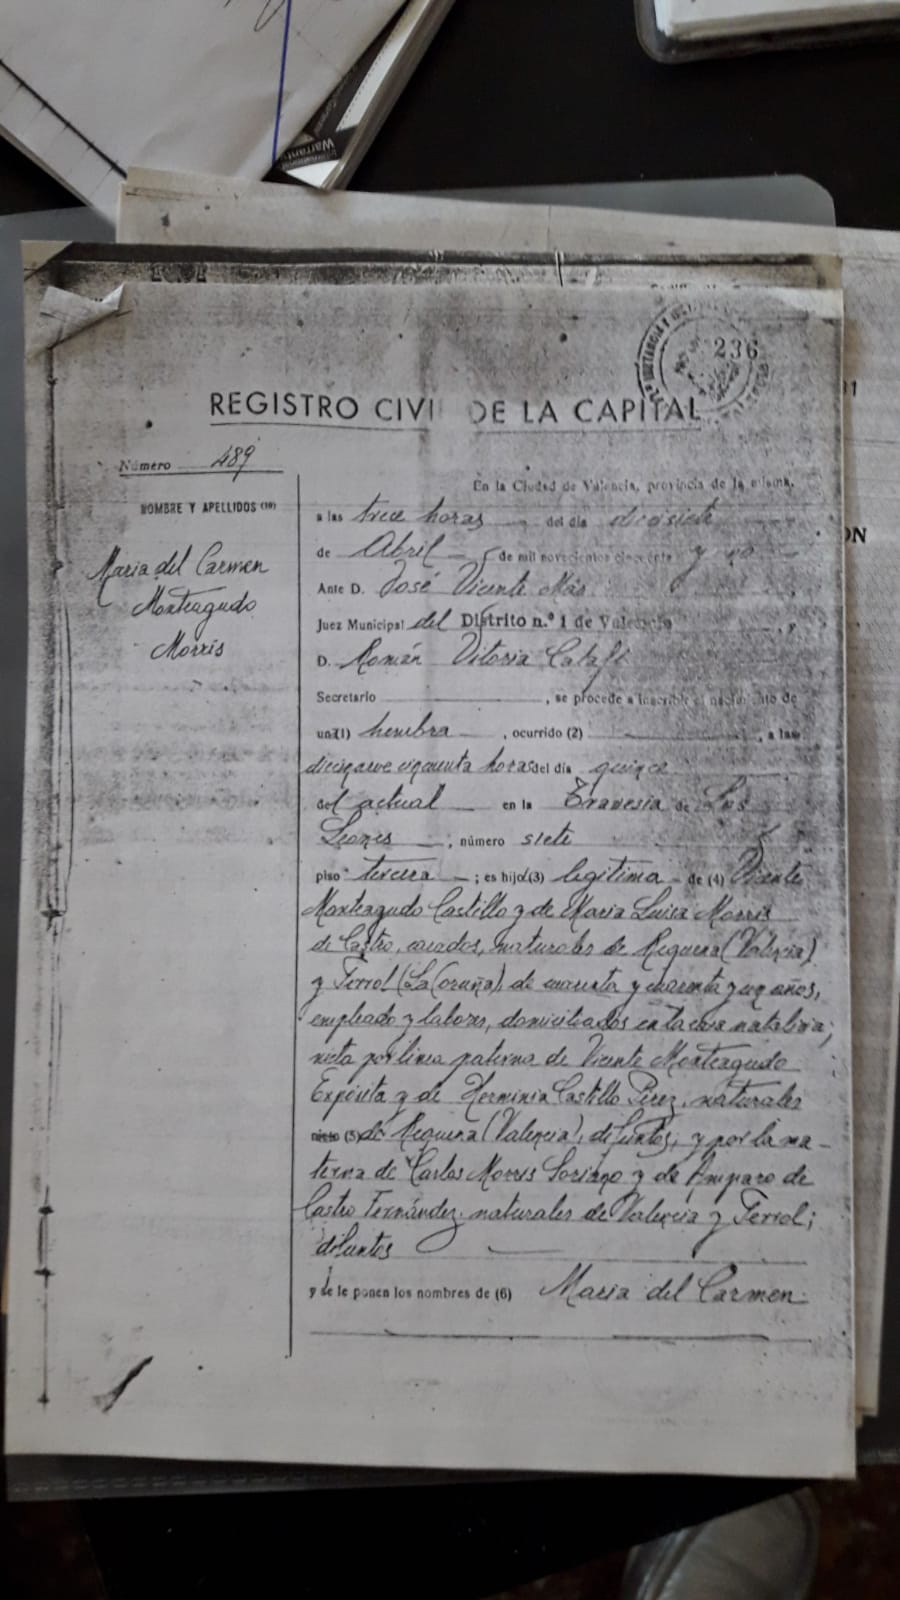 Warranty
236
REGISTRO CIVI DE LA CAPITAL
Número 489
NOMBRE Y APELLIDOS (10)
Maria del Carmen
Monteagudo
Morris
En la Ciudad de Valencia, provincia de la misma,
a las trece horas del día diecisiete
de Abril de mil novecientos cincuenta y
Ante D. José Vicente Más
Juez Municipal del Distrito n.º 1 de Valencia, y
D. Román Vitoria
Secretario, se procede a inscribir el nacimiento de
una (1) hembra, ocurrido (2), a las
diecinueve cincuenta horas del día quince
del actual en la Travesia de Los
Leones; número siete
piso tercera; es hija (3) legitima de (4) Vicente
Monteagudo Castillo y de Maria Luisa Morris
de Castro, casados, naturales de Requena (Valencia)
y Ferrol (La Coruña), de cuarenta y cuarenta y un años,
empleado y labores, domiciliados en la casa natalicia;
nieta por linea paterna de Vicente Monteagudo
Expósita y de Herminia Castillo Pérez, naturales
nieto (5) de Requena (Valencia), difuntos, y por la ma-
terna de Carlos Morris Soriano y de Amparo de
Castro Fernández, naturales de Valencia y Ferrol;
difuntos
y se le ponen los nombres de (6) Maria del Carmen